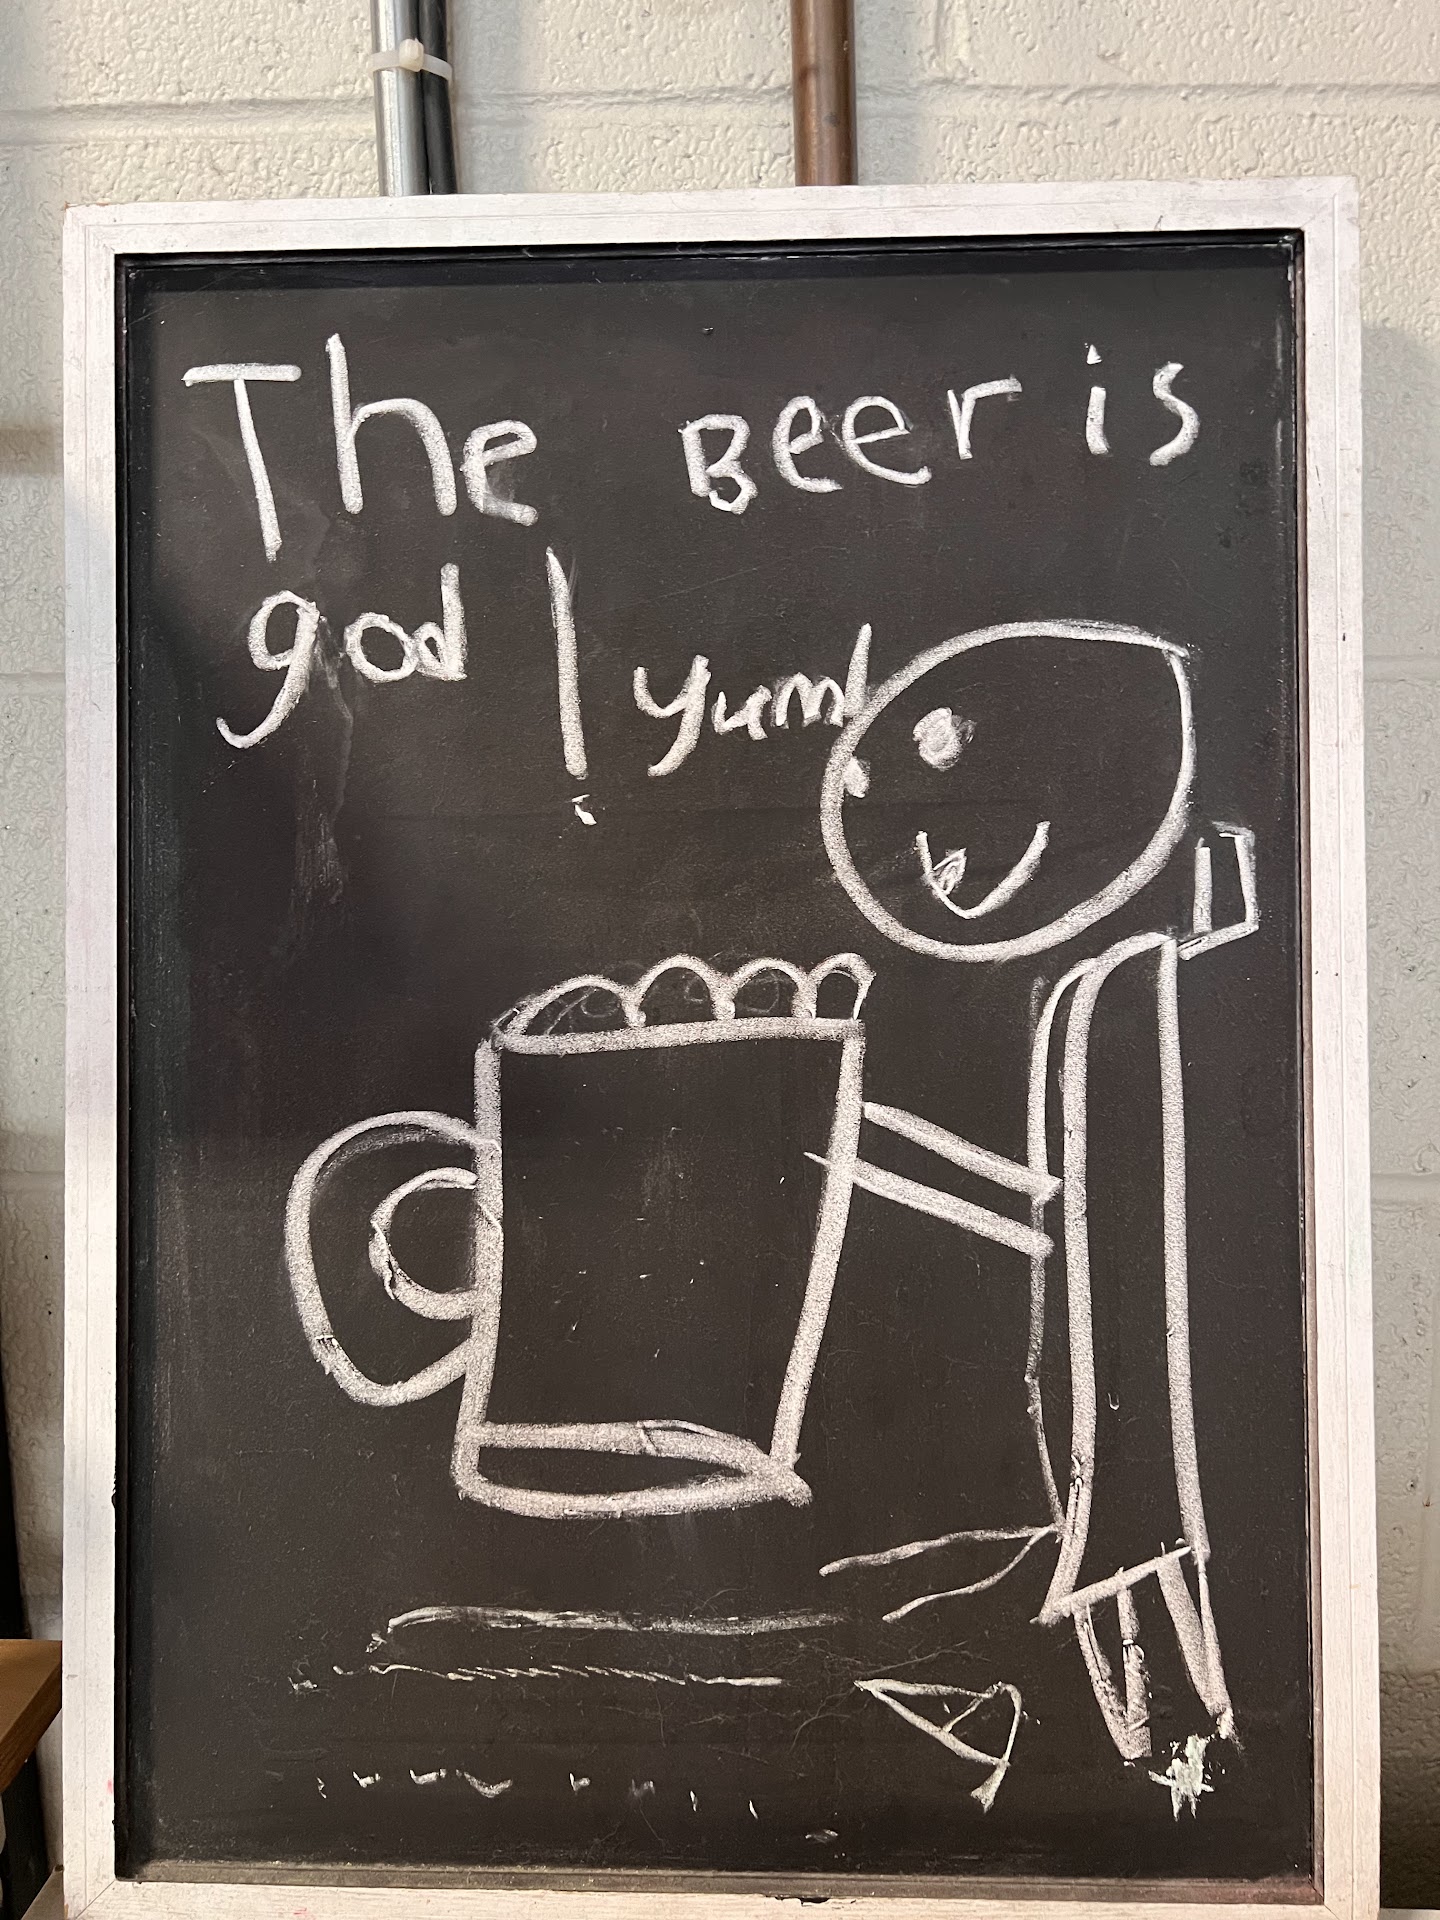 The Beer is
god! yum!